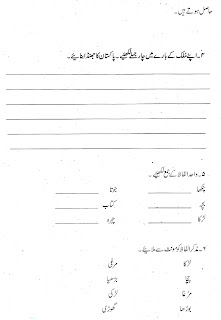 حاصل ہوتے ہیں۔
۴۔ اپنے ملک کے بارے میں چار جملے لکھیئے۔ پاکستان کا جھنڈا بنائیے۔
۵۔ واحد الفاظ کے جمع لکھیئے۔
پنکھا جوتا
بچہ کتاب
لڑکا چوزہ
۶۔ مذکر الفاظ کو مونث سے ملایئے۔
لڑکا مرغی
چچا بڑھیا
مرغا لڑکی
بوڑھا گھوڑی